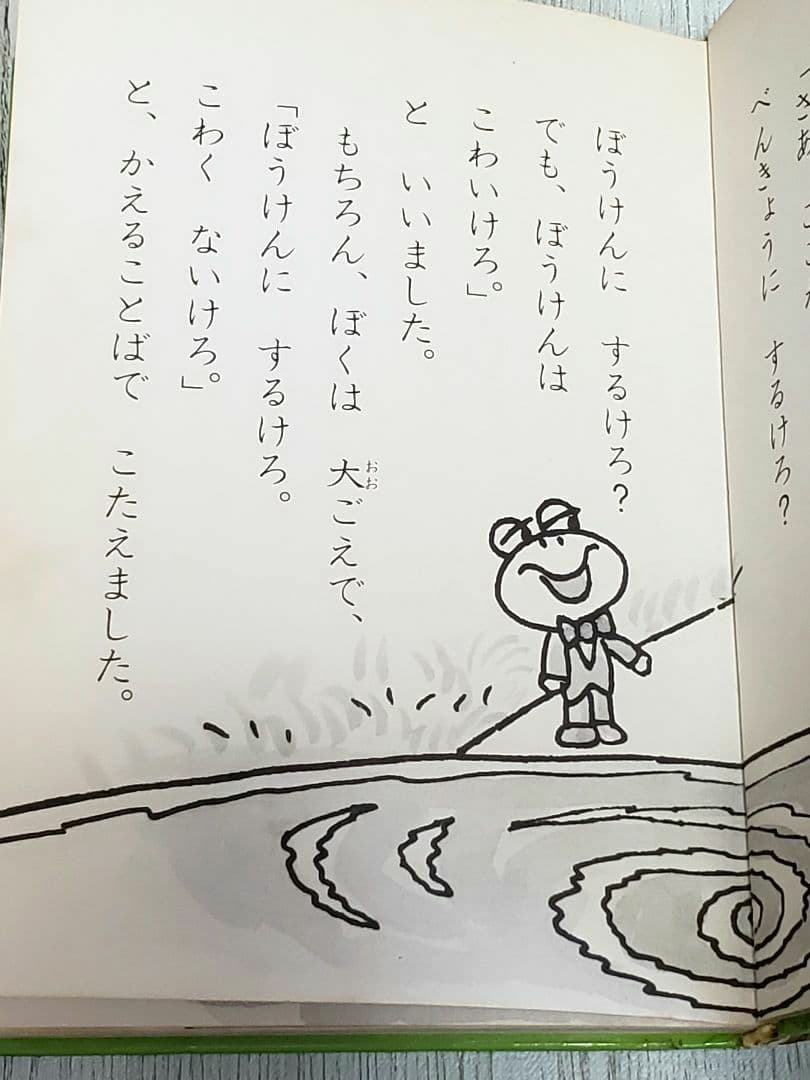 べんきょうに　するけろ？
ぼうけんに　するけろ？
でも、ぼうけんは
こわいけろ。」
と　いいました。
もちろん、ぼくは　大ごえで、
おお
「ぼうけんに　するけろ。
こわく　ないけろ。」
と、かえることばで　こたえました。